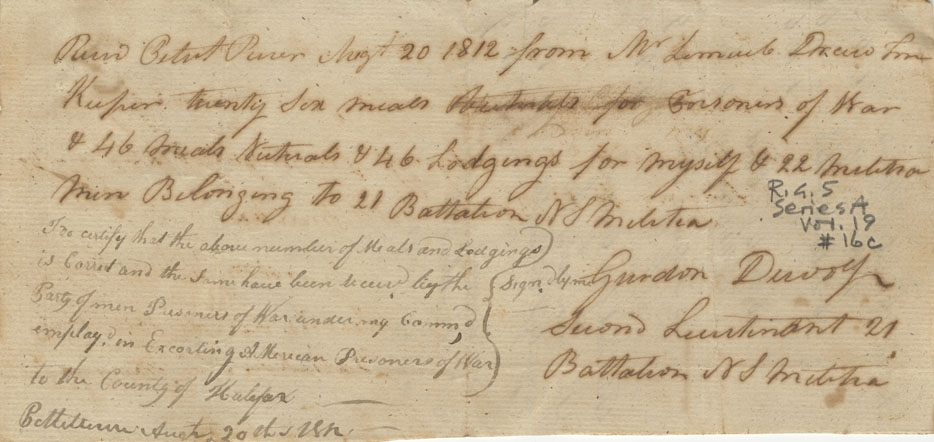 Recvd Petit River Augt 20 1812 from Mr Lemuel Drew Inn
Keeper twenty Six meals Victuals for Prisoners of War
& 46 Meals Victuals & 46 Lodgings for myself & 22 Militia
Men Belonging to 21 Battalion N S Militia
R.G. 5
Series A
Vol. 19
#16c
I Do certify that the above number of Meals and Lodgings
is Correct and the Same have been by the
Party of men Prisoners of War under my Command
employd in Escorting American Prisoners of War
to the County of Halifax
Augt 20th 1812
Sign. by me
Gurdon Dewolf
Second Lieutinant 21
Battalion N S Militia